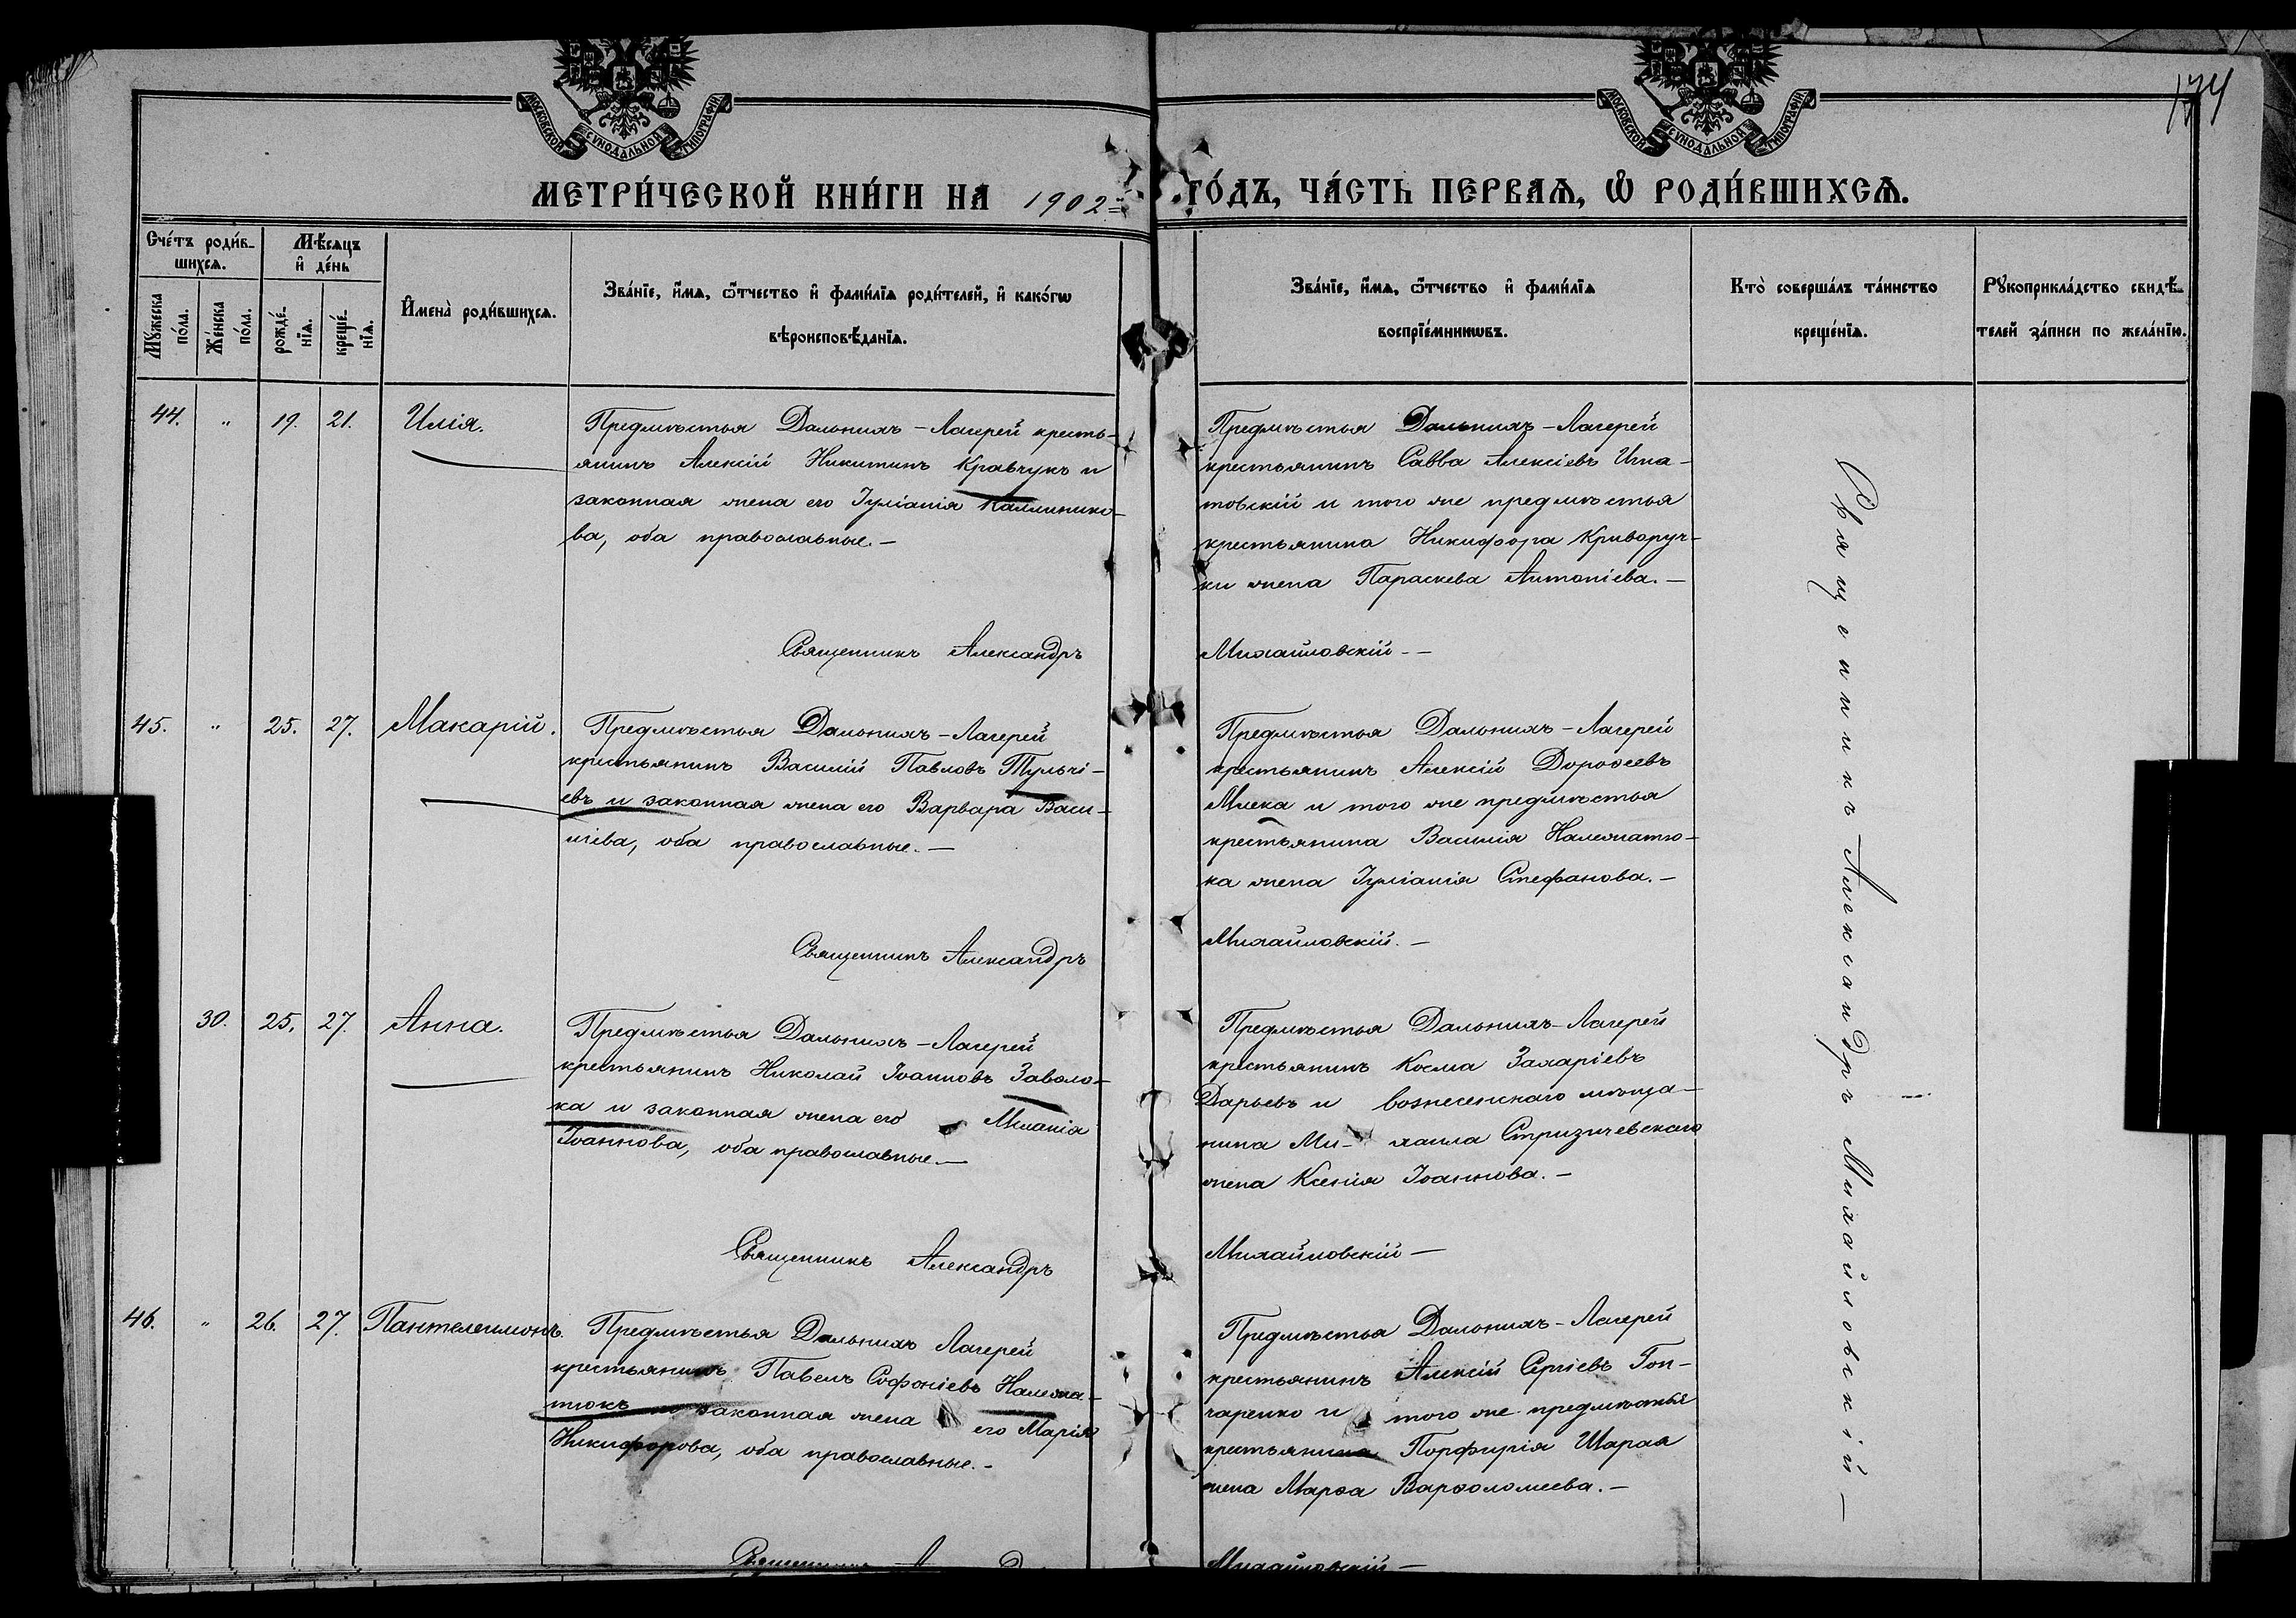 174
МОСКОВСКОЙ СѴНОДАЛЬНОЙ ТИПОГРАФІИ
МОСКОВСКОЙ СѴНОДАЛЬНОЙ ТИПОГРАФІИ
МЕТРИ́ЧЕСКОЙ КНИ́ГИ НА 1902й ГО́ДЪ, ЧА́СТЬ ПЕРВАѦ, Ѡ РОДИ́ВШИХСѦ.
Сче́тъ роди́в-
шихсѧ.
Мѣ́сѧцъ
и҆ де́нь
Мꙋжеска
по́ла.
Же́нска
по́ла.
рожде́-
нїѧ.
креще́-
нїѧ.
И҆мена̀ роди́вшихсѧ.
Зва́нїе, и҆́мѧ, ѻ҆́тчество и҆ фами́лїѧ роди́телей, и҆ како́гѡ
вѣроисповѣ́данїѧ.
Зва́нїе, и҆́мѧ, ѻ҆́тчество и҆ фами́лїѧ
воспрїе́мникѡвъ.
Кто̀ соверша́лъ та́инство
креще́нїѧ.
Рꙋкоприкла́дство свидѣ́-
телей за́писи по жела́нїю.
44. " 19. 21. Илія.
Предмѣстья Дальнихъ-Лагерей кресть-
янинъ Алексій Никитинъ Кравчукъ и
законная жена его Іуліанія Каллинико-
ва, оба православные.-
Предмѣстья Дальнихъ-Лагерей
крестьянинъ Савва Алексіевъ Игна-
товскій и того же предмѣстья
крестьянина Никифора Криворуч-
ки жена Параскева Антоніева.-
Священникъ Александръ Михайловскій--
45. " 25. 27. Макарій.
Предмѣстья Дальнихъ-Лагерей
крестьянинъ Василій Павловъ Тульчі-
евъ и законная жена его Варвара Васи-
ліева, оба православные.-
Предмѣстья Дальнихъ-Лагерей
крестьянинъ Алексій Дороѳеевъ
Млека и того же предмѣстья
крестьянина Василія Належатю-
ка жена Іуліанія Стефанова.-
Священникъ Александръ Михайловскій.-
30. 25. 27. Анна.
Предмѣстья Дальнихъ-Лагерей
крестьянинъ Николай Іоанновъ Заволо-
ка и законная жена его Меланія
Іоаннова, оба православные.-
Предмѣстья Дальнихъ-Лагерей
крестьянинъ Косма Захаріевъ
Дарьевъ и вознесенскаго мѣща-
нина Ми-хаила Стризичевскаго
жена Ксенія Іоаннова.-
Священникъ Александръ Михайловскій-
46. " 26. 27. Пантелеимонъ.
Предмѣстья Дальнихъ Лагерей
крестьянинъ Павелъ Софоніевъ Належа-
тюкъ и законная жена его Марія
Никифорова, оба православные.-
Предмѣстья Дальнихъ-Лагерей
крестьянинъ Алексій Сергіевъ Гон-
чаренко и того же предмѣстья
крестьянина Порфирія Шарая
жена Марѳа Варѳоломеева.-
Священникъ Михайловскій-
Священникъ Александръ Михайловскій-